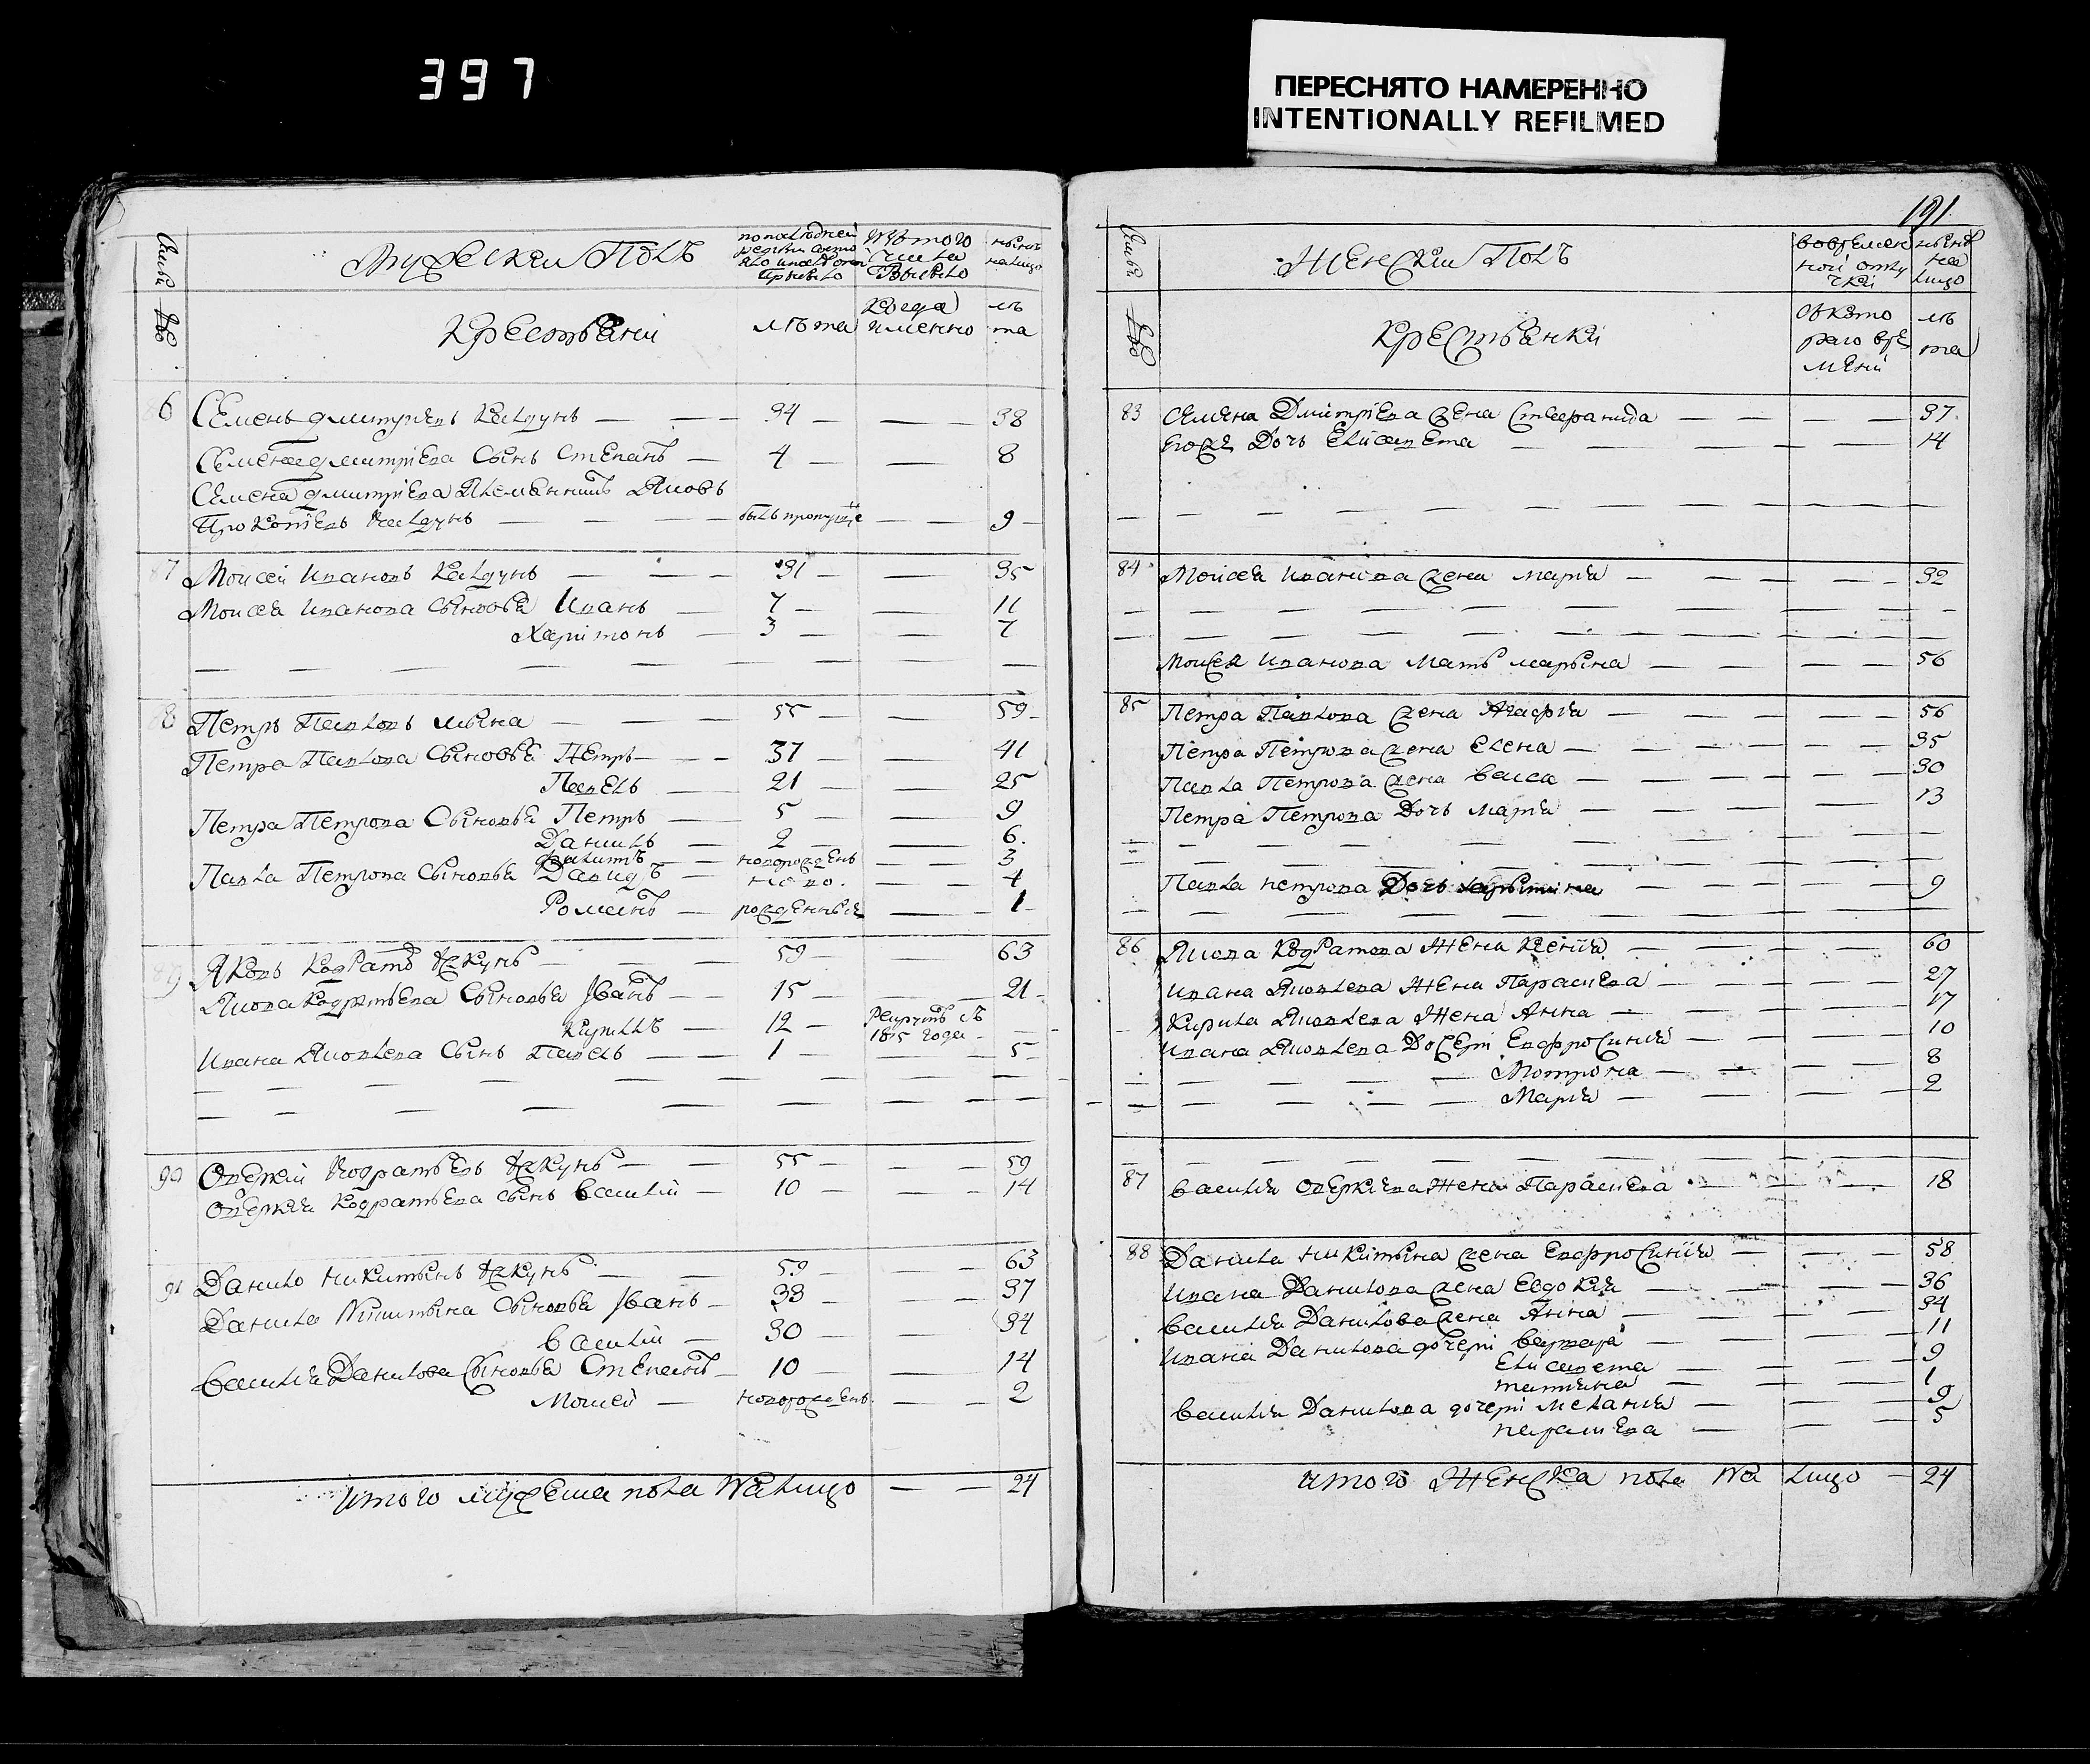 397
ПЕРЕСНЯТО НАМЕРЕННО
INTENTIONALLY REFILMED
Мужескии Полъ
по последней
ревизии состо
яло и после оной
прибыло
Изъ того
числа
Выбыло
ныне
налицо
Крестьяни
лѣта
Когда
именно
лѣ
та
6 Семенъ Дмитриевъ Калдунъ — 34 — — 38
Семена Дмитриева Сынъ Степанъ — 4 — — 8
Семена Дмитриева Племянникъ Яковъ
Прокопьевъ Калдунъ — былъ пропущѣ — — 9
87 Моисей Ивановъ Калдунъ — 31 — — 35
Моисея Иванова Сыновья Иванъ — 7 — — 11
Харитонъ — 3 — — 7
8 Петръ Павловъ — 55 — — 59
Петра Павлова Сыновья Петръ — 37 — — 41
Павелъ — 21 — — 25
Петра Петрова Сыновья Петръ — 5 — — 9
Данилъ — 2 — — 6
Филипъ — новорожденъ — — 3
Павла Петрова Сыновья Давидъ — ново — — 4
Романъ — рожденныя — — 1
89 Яковъ Кодратъ — 59 — — 63
Якова Кодратьева Сыновья Іванъ — 15 — — 21
Кирилъ — 12 — Рекрутъ съ
1815 года
Ивана Яковлева Сынъ Павелъ — 1 — — 5
90 Оверкий Кодратьевъ — 55 — — 59
Оверкия Кодратьева сынъ Василий — 10 — — 14
91 Данило Никитинъ — 59 — — 63
Данила Никитина Сыновья Іванъ — 33 — — 37
Василий — 30 — — 34
Василия Данилова Сыновья Степанъ — 10 — — 14
Моисей — новорожденъ — — 2
Итого мужеска пола На лицо — — 24
191
Женский Полъ
во времен
ной отлу
чки
ныне
на
лицо
Крестьянки
съ кото
раго вре
мени
лѣ
та
83 Семена Дмитриева жена Стефанида — — 37
Егоже Дочь Елисавета — — 14
84 Моисея Иванова жена Мария — — 32
Моисея Иванова Мать Марьяна — — 56
85 Петра Павлова жена Агафия — — 56
Петра Петрова жена Елена — — 35
Павла Петрова жена Васса — — 30
Петра Петрова Дочь Мария — — 13
Павла Петрова Дочь — — 9
86 Якова Кодратова Жена Ксения — — 60
Ивана Яковлева Жена Парасиева — — 27
Кирила Яковлева Жена Анна — — 17
Ивана Яковлева Дочери Евфросиния — — 10
Мотрона — — 8
Мария — — 2
87 Василия Оверкиева Жена Парасиева — — 18
88 Данила Никитина жена Евфросиния — — 58
Ивана Данилова жена Евдокия — — 36
Василия Данилова жена Анна — — 34
Ивана Данилова дочери Варвара — — 11
Елисавета — — 9
татияна — — 1
Василия Данилова дочери Мелания — — 9
парасиева — — 5
итого Женска пола На лицо — 24